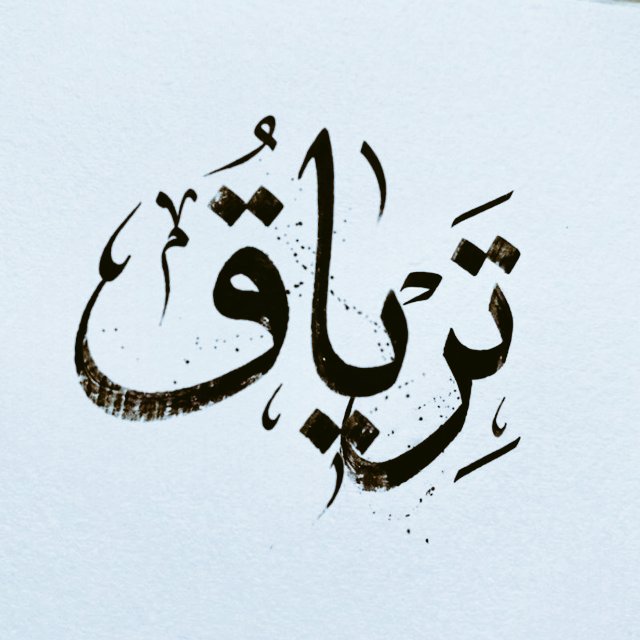 تَرِياقُ